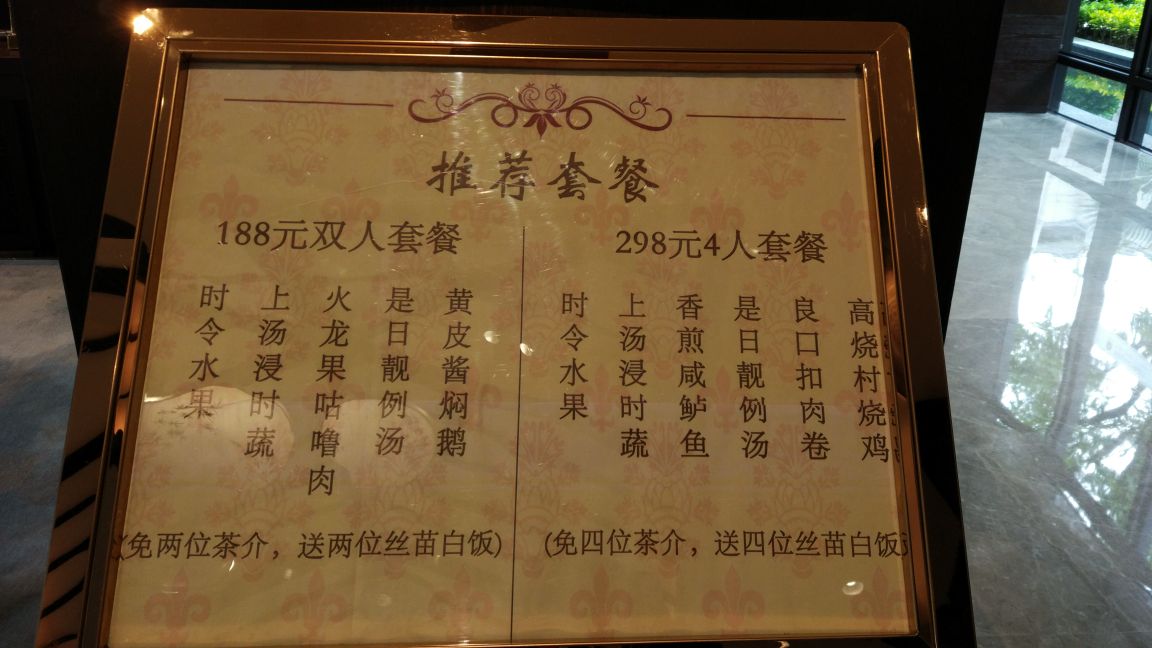 推荐套餐
188元双人套餐
黄皮酱焖鹅
是日靓例汤
火龙果咕噜肉
上汤浸时蔬
时令水果
(免两位茶介，送两位丝苗白饭)
298元4人套餐
高烧村烧鸡
良口扣肉卷
是日靓例汤
香煎咸鲈鱼
上汤浸时蔬
时令水果
(免四位茶介，送四位丝苗白饭)